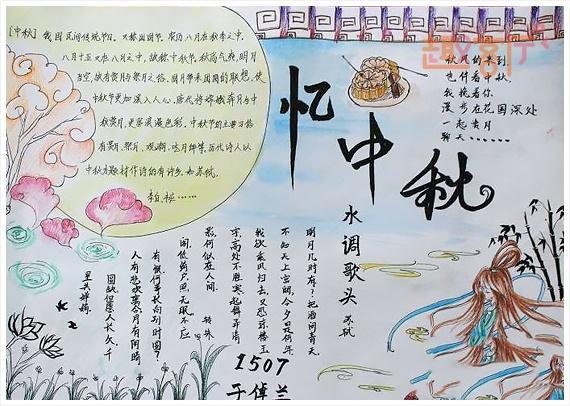 [中秋] 我国民间传统节日，又称团圆节，农历八月在秋季之中，
八月十五又在八月之中，故称中秋节。秋高气爽，明月
当空，故有赏月与祭月之俗。圆月带来团圆的联想，使
中秋节更加深入人心。唐代将嫦娥奔月与中
秋赏月，更富浪漫色彩。中秋节的主要习俗
有赏月、祭月、观潮、吃月饼等。历代诗人以
中秋为题材作诗的有许多，如苏轼，
李白，杨……
忆中秋
秋风的来到
也伴着中秋，
我挽着你
漫步在花园深处
一起赏月
聊天……
水调歌头 苏轼
明月几时有？把酒问青天
不知天上宫阙，今夕是何年
我欲乘风归去，又恐琼楼玉
宇，高处不胜寒。起舞弄清
影，何似在人间。
转朱
阁，低绮户，照无眠。不应
有恨，何事长向别时圆？
人有悲欢离合，月有阴晴
圆缺，但愿人长久，千
里共婵娟。
1507
于倬兰